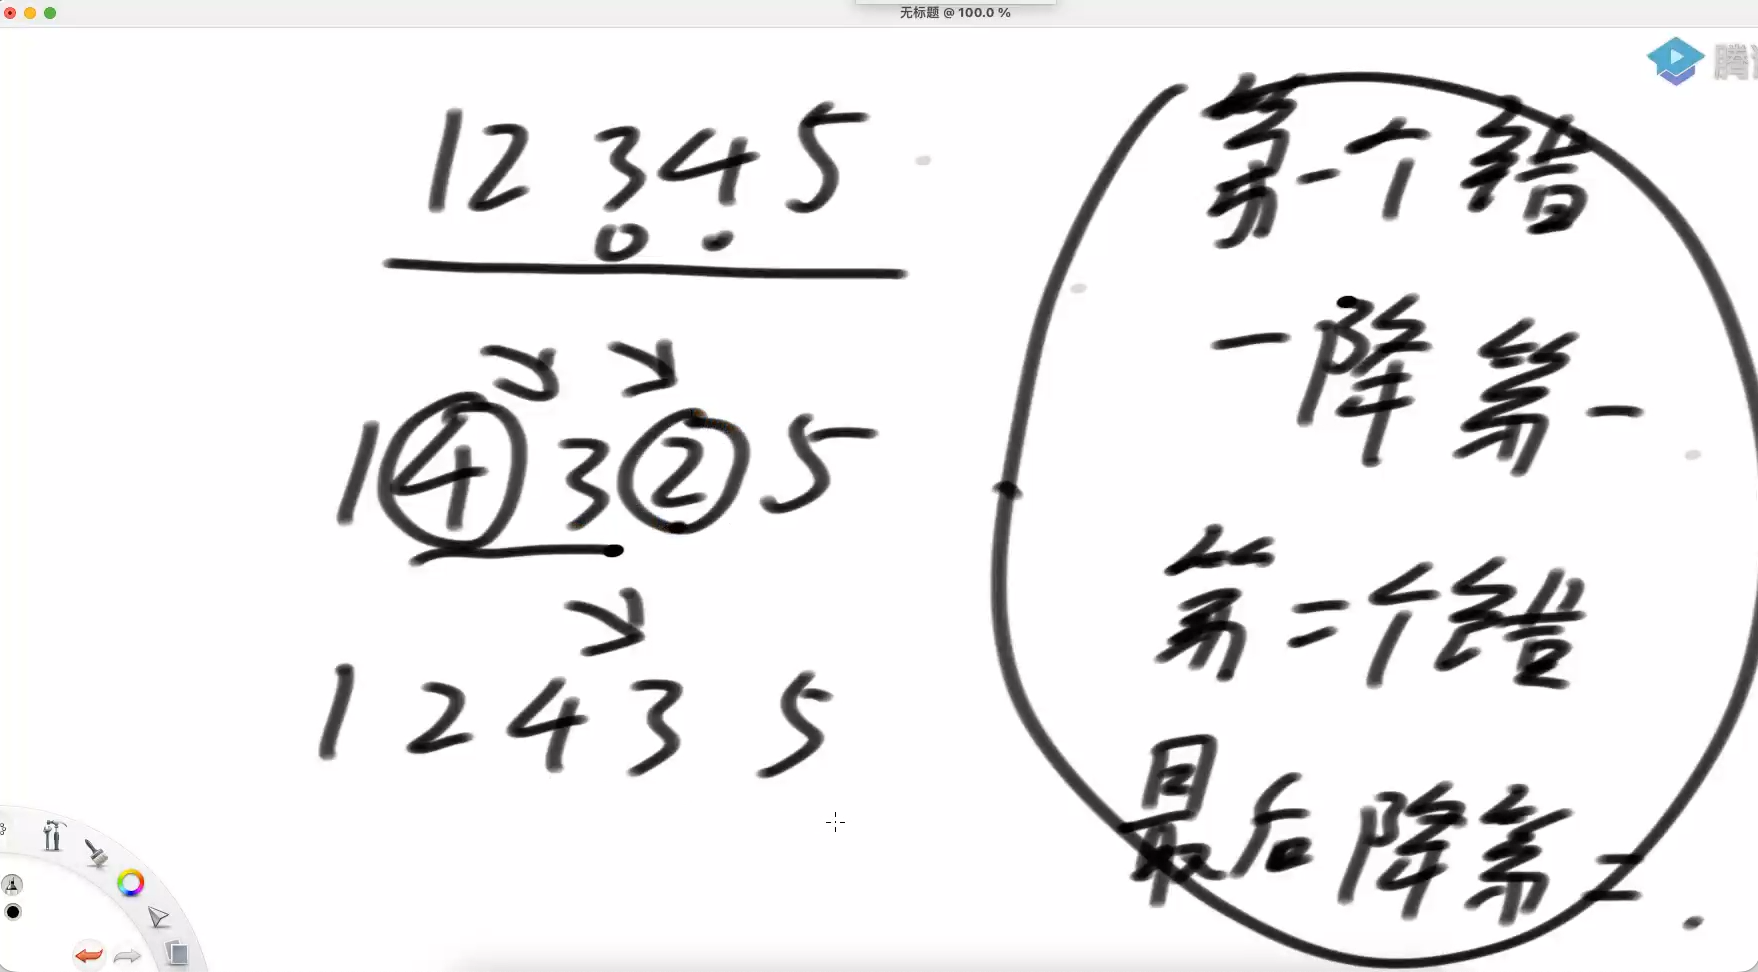 无标题 @ 100.0 %
腾
12 3 4 5
1 4 3 2 5
1 2 4 3 5
第一个错
一降第一
第二个错
最后降第二.